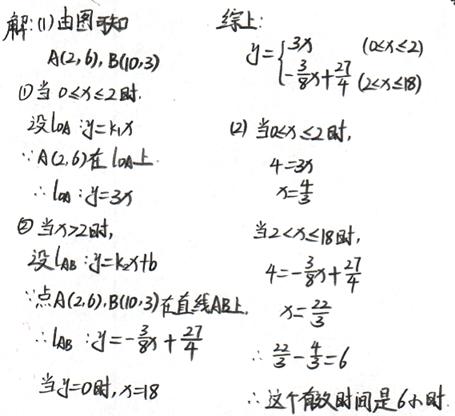 解:(1)由图可知
A(2,6),B(10,3)
①当 0≤x≤2时.
设lOA:y=k₁x
∵A(2,6)在lOA上.
∴lOA:y=3x
②当x>2时,
设lAB:y=k₂x+b
∵点A(2,6),B(10,3)在直线AB上.
∴lAB:y=-3/8x+27/4
当y=0时,x=18
综上:
y={3x (0≤x≤2)
-3/8x+27/4 (2<x≤18)
(2) 当0≤x≤2时,
4=3x
x=4/3
当2<x≤18时,
4=-3/8x+27/4
x=22/3
∴22/3-4/3=6
∴这个有效时间是6小时.